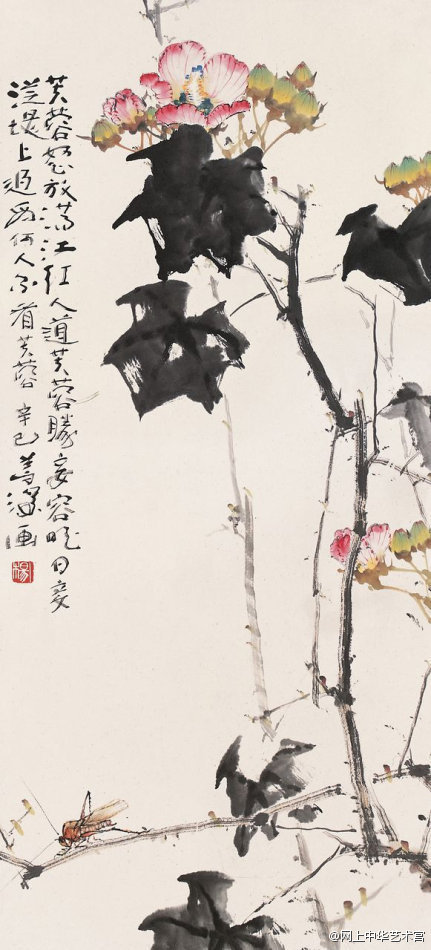 芙蓉怒放滿江紅人道芙蓉勝妾容昨日妾
從堤上過為何人不看芙蓉 辛巳 善深画
楊
@网上中华艺术宫